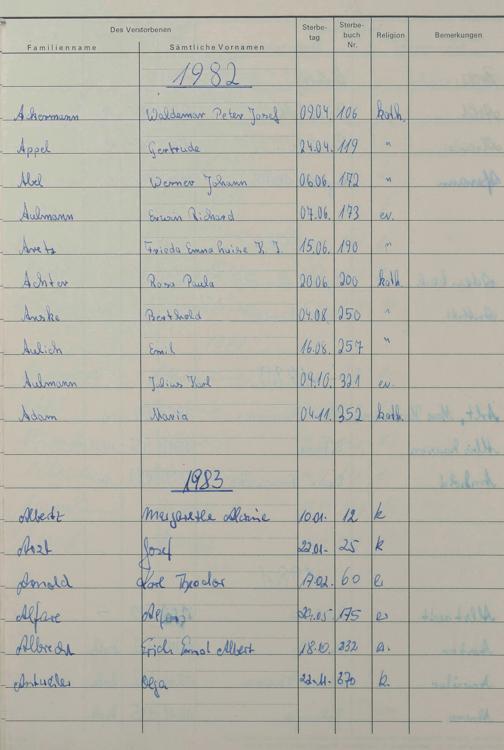 Des Verstorbenen Sterbe- Sterbe-
Familienname Sämtliche Vornamen tag buch Nr. Religion Bemerkungen
1982
Ackermann Waldemar Peter Josef 09.04. 106 kath.
Appel Gertrude 24.04. 119 "
Abel Werner Johann 06.06. 172 "
Aulmann Erwin Richard 07.06. 173 ev.
Aretz Frieda Emma Luise 15.06. 190 "
Achter Rosa Paula 20.06 200 kath.
Anske Berthold 04.08. 250 "
Aulich Emil 16.08. 257 "
Aulmann Julius Karl 09.10. 321 ev.
Adam Maria 04.11. 352 kath.
1983
Albertz Margarethe 10.01. 12 k
Arzt Josef 22.01. 25 k
Arnold Karl Theodor 17.02. 60 e
175
Albrecht Erich Ernst Albert 18.10. 332
Antweiler Olga 370 k.